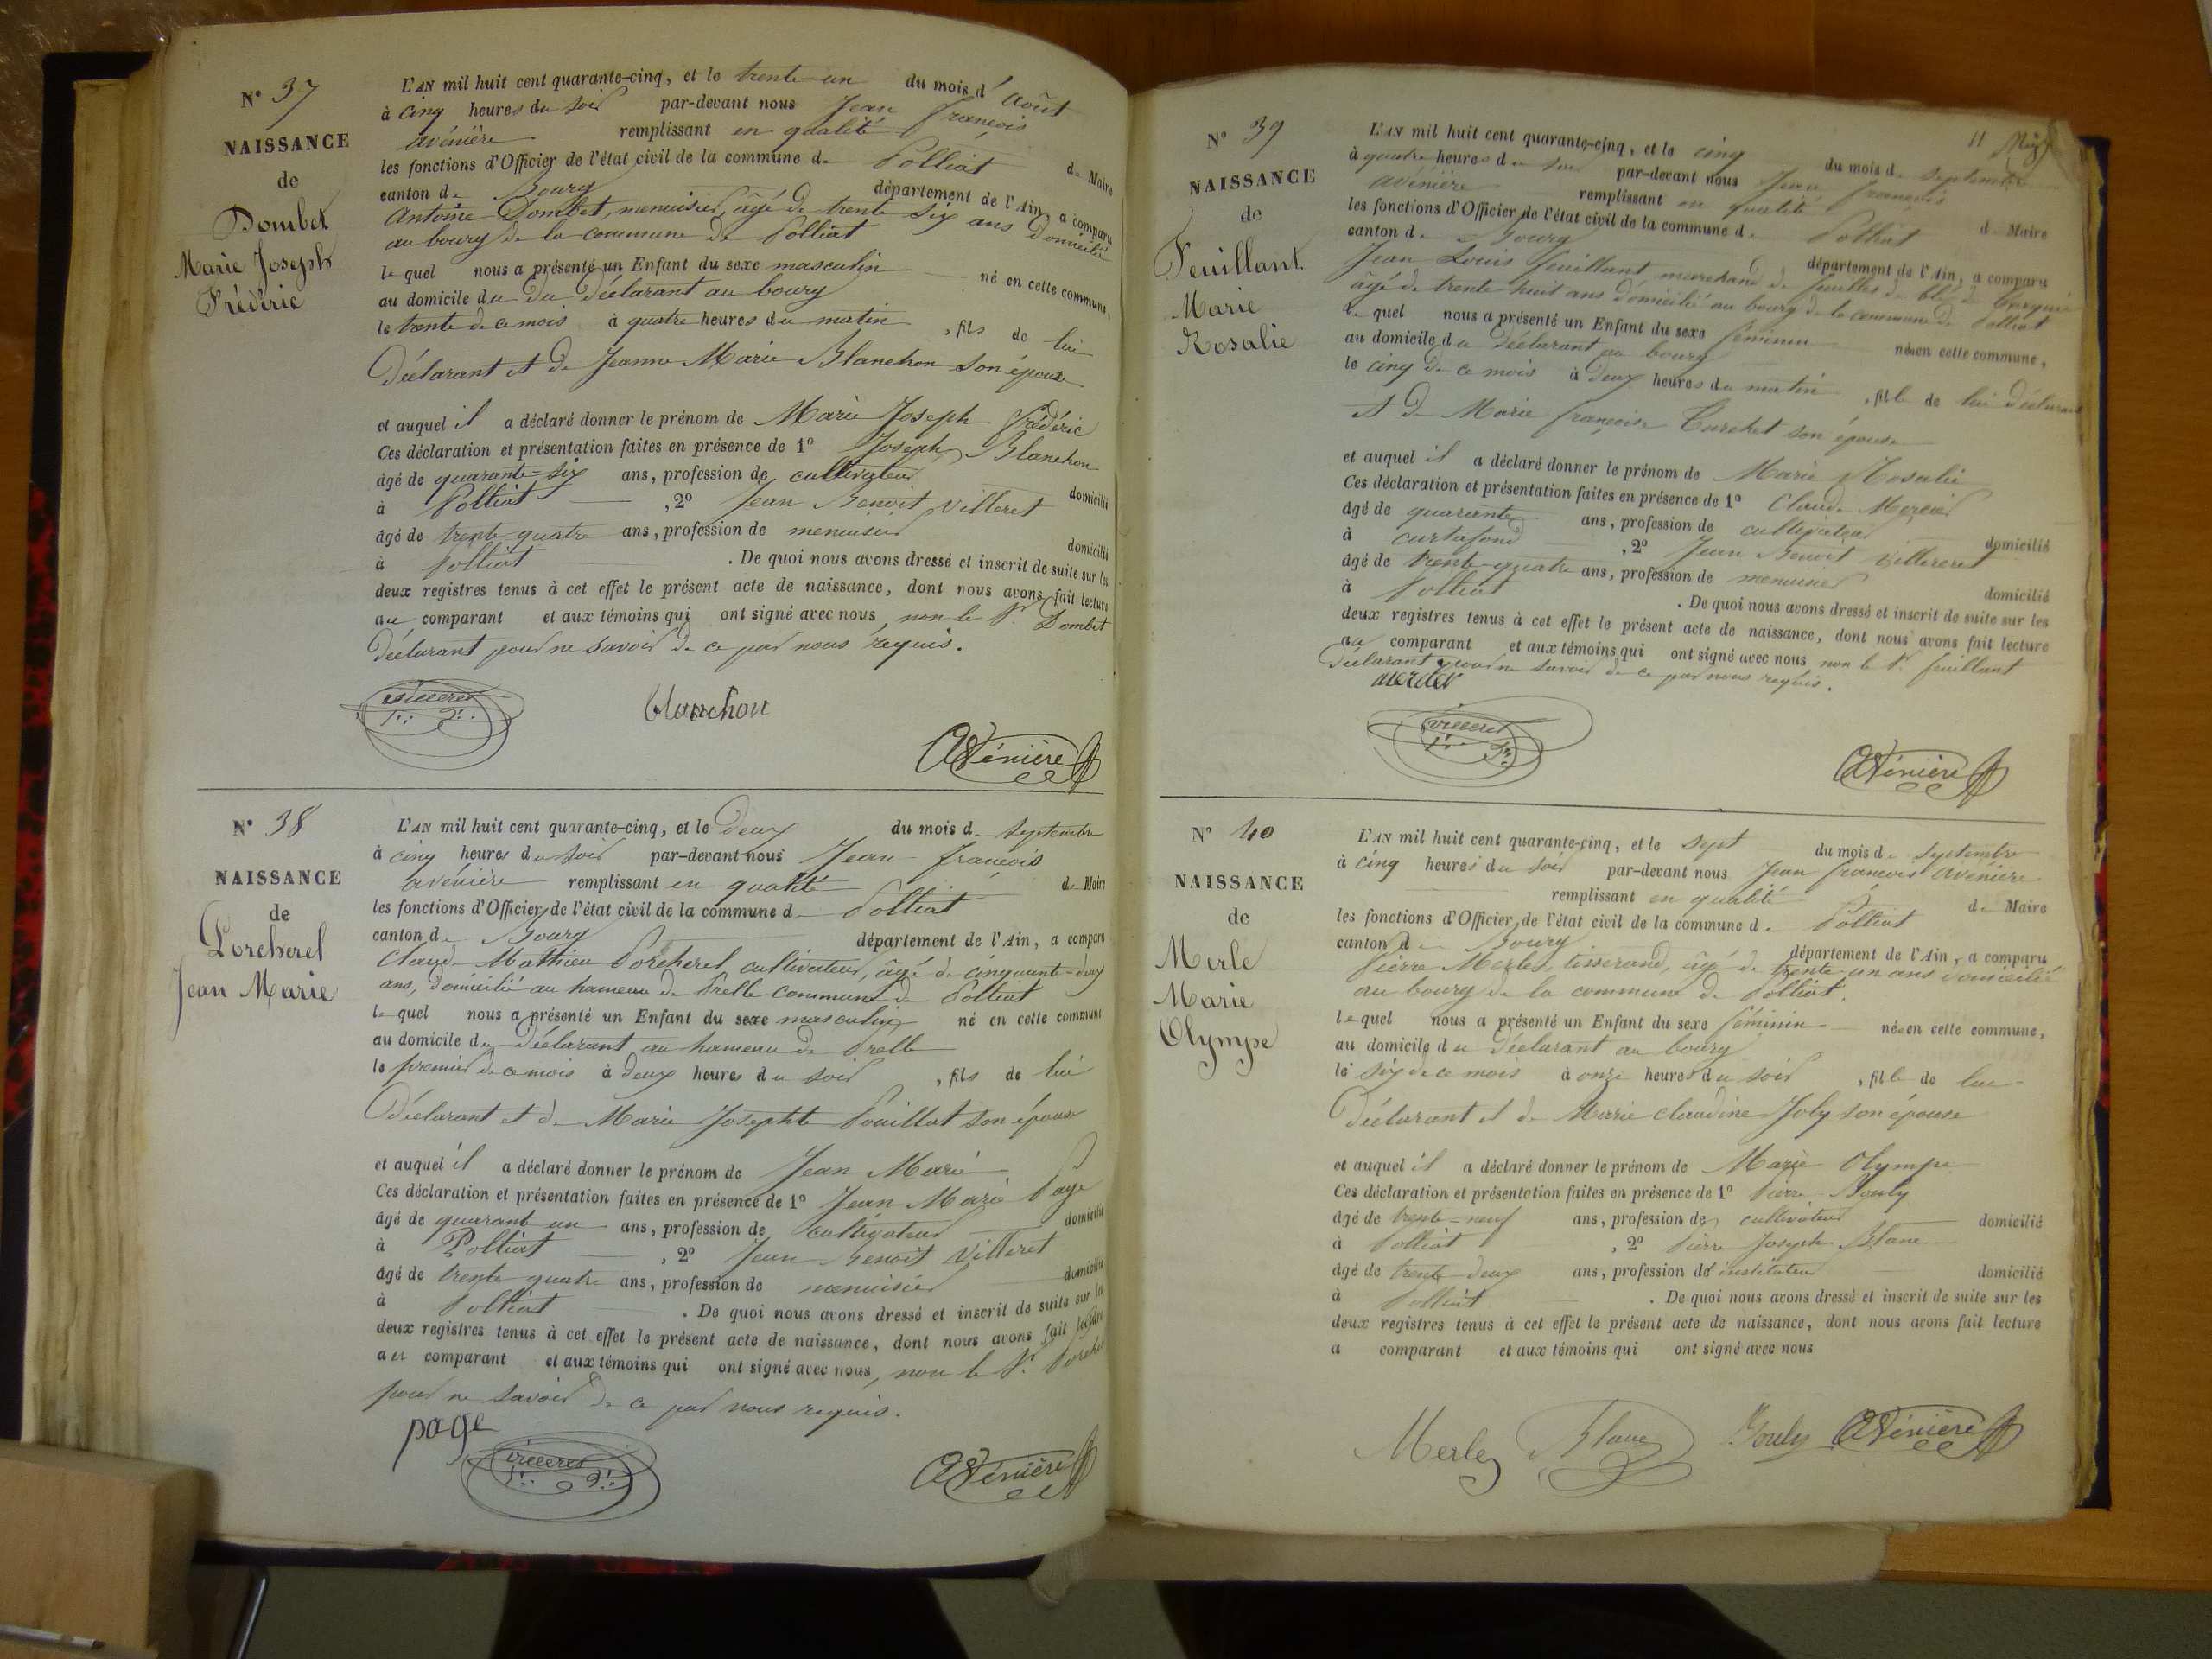 N° 37
NAISSANCE
de
Dombet
Marie Joseph
Frédéric
L'AN mil huit cent quarante-cinq, et le trente-un du mois d'août
à cinq heures du soir par-devant nous Jean François
avénière remplissant en qualité de Maire
les fonctions d'Officier de l'état civil de la commune de Polliat
canton de Bourg département de l'Ain, a comparu
Antoine Dombet, menuisier, âgé de trente six ans domicilié
au bourg de la commune de Polliat
le quel nous a présenté un Enfant du sexe masculin né en cette commune,
au domicile du du déclarant au bourg
le trente de ce mois à quatre heures du matin, fils de lui
Déclarant et de Jeanne Marie Blanchon son épouse
et auquel il a déclaré donner le prénom de Marie Joseph Frédéric
Ces déclaration et présentation faites en présence de 1° Joseph Blanchon
âgé de quarante-six ans, profession de cultivateur domicilié
à Polliat, 2° Jean Benoit Villeret
âgé de trente quatre ans, profession de menuisier domicilié
à Polliat. De quoi nous avons dressé et inscrit de suite sur les
deux registres tenus à cet effet le présent acte de naissance, dont nous avons fait lecture
au comparant et aux témoins qui ont signé avec nous, non le Sr. Dombet
Déclarant pour ne savoir de ce par nous requis.
villeret
Blanchon
Avénière
N° 38
NAISSANCE
de
Porcherel
Jean Marie
L'AN mil huit cent quarante-cinq, et le deux du mois de septembre
à cinq heures du soir par-devant nous Jean François
avénière remplissant en qualité de Maire
les fonctions d'Officier de l'état civil de la commune de Polliat
canton de Bourg département de l'Ain, a comparu
Claude Mathieu Porcherel, cultivateur, âgé de cinquante-deux
ans, domicilié au hameau de Prelle commune de Polliat
le quel nous a présenté un Enfant du sexe masculin né en cette commune,
au domicile du Déclarant au hameau de Prelle
le premier de ce mois à deux heures du soir, fils de lui
Déclarant et de Marie Josephte Pouillat son épouse
et auquel il a déclaré donner le prénom de Jean Marie
Ces déclaration et présentation faites en présence de 1° Jean Marie Page
âgé de quarante un ans, profession de cultivateur domicilié
à Polliat, 2° Jean Benoit Villeret
âgé de trente quatre ans, profession de menuisier domicilié
à Polliat. De quoi nous avons dressé et inscrit de suite sur les
deux registres tenus à cet effet le présent acte de naissance, dont nous avons fait lecture
au comparant et aux témoins qui ont signé avec nous, non le Sr. Porcherel
pour ne savoir de ce par nous requis.
page
villeret
Avénière
11
N° 39
NAISSANCE
de
Feuillant
Marie
Rosalie
L'AN mil huit cent quarante-cinq, et le cinq du mois de septembre
à quatre heures du soir par-devant nous Jean François
avénière remplissant en qualité de Maire
les fonctions d'Officier de l'état civil de la commune de Polliat
canton de Bourg département de l'Ain, a comparu
Jean Louis feuillant marchand de feuilles de blé de turquie
âgé de trente huit ans domicilié au bourg de la commune de Polliat
le quel nous a présenté un Enfant du sexe féminin née en cette commune,
au domicile du Déclarant au bourg
le cinq de ce mois à deux heures du matin, fille de lui déclarant
et de Marie françoise Curchet son épouse
et auquel il a déclaré donner le prénom de Marie Rosalie
Ces déclaration et présentation faites en présence de 1° Claude Mercier
âgé de quarante ans, profession de cultivateur domicilié
à curtafond, 2° Jean Benoit Villereret
âgé de trente-quatre ans, profession de menuisier domicilié
à Polliat. De quoi nous avons dressé et inscrit de suite sur les
deux registres tenus à cet effet le présent acte de naissance, dont nous avons fait lecture
au comparant et aux témoins qui ont signé avec nous non le Sr. feuillant
Déclarant pour ne savoir de ce par nous requis.
mercier
villeret
Avénière
N° 40
NAISSANCE
de
Merle
Marie
Olympe
L'AN mil huit cent quarante-cinq, et le sept du mois de septembre
à cinq heures du soir par-devant nous Jean françois avénière
remplissant en qualité de Maire
les fonctions d'Officier de l'état civil de la commune de Polliat
canton de Bourg département de l'Ain, a comparu
Pierre Merle, tisserand, âgé de trente un ans domicilié
au bourg de la commune de Polliat.
le quel nous a présenté un Enfant du sexe féminin née en cette commune,
au domicile du déclarant au bourg
le six de ce mois à onze heures du soir, fille de lui
Déclarant et de Marie claudine Joly son épouse
et auquel il a déclaré donner le prénom de Marie Olympe
Ces déclaration et présentation faites en présence de 1° Pierre Bouly
âgé de trente-neuf ans, profession de cultivateur domicilié
à Polliat, 2° Pierre Joseph Blanc
âgé de trente-deux ans, profession d'instituteur domicilié
à Polliat. De quoi nous avons dressé et inscrit de suite sur les
deux registres tenus à cet effet le présent acte de naissance, dont nous avons fait lecture
a comparant et aux témoins qui ont signé avec nous
Merle Blanc Bouly Avénière